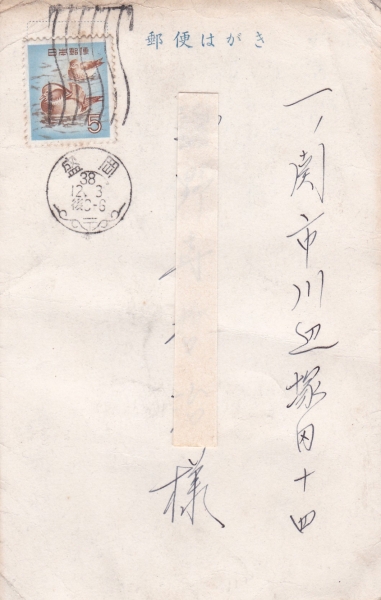 郵便はがき
日本郵便
5
盛岡
38
12. 3
後0-6
一ノ関市川辺塚田十四
様